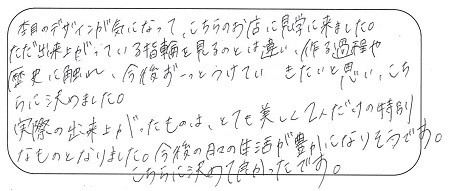 木目のデザインが気になって、こちらのお店に見学に来ました。
ただ出来上がっている指輪を見るのとは違い、作る過程や
歴史に触れ、今後ずーっとつけていきたいと思い、こち
らに決めました。
実際の出来上がったものは、とても美しく2人だけの特別
なものとなりました。今後の日々の生活が豊かになりそうです。
こちらに決めて良かったです。